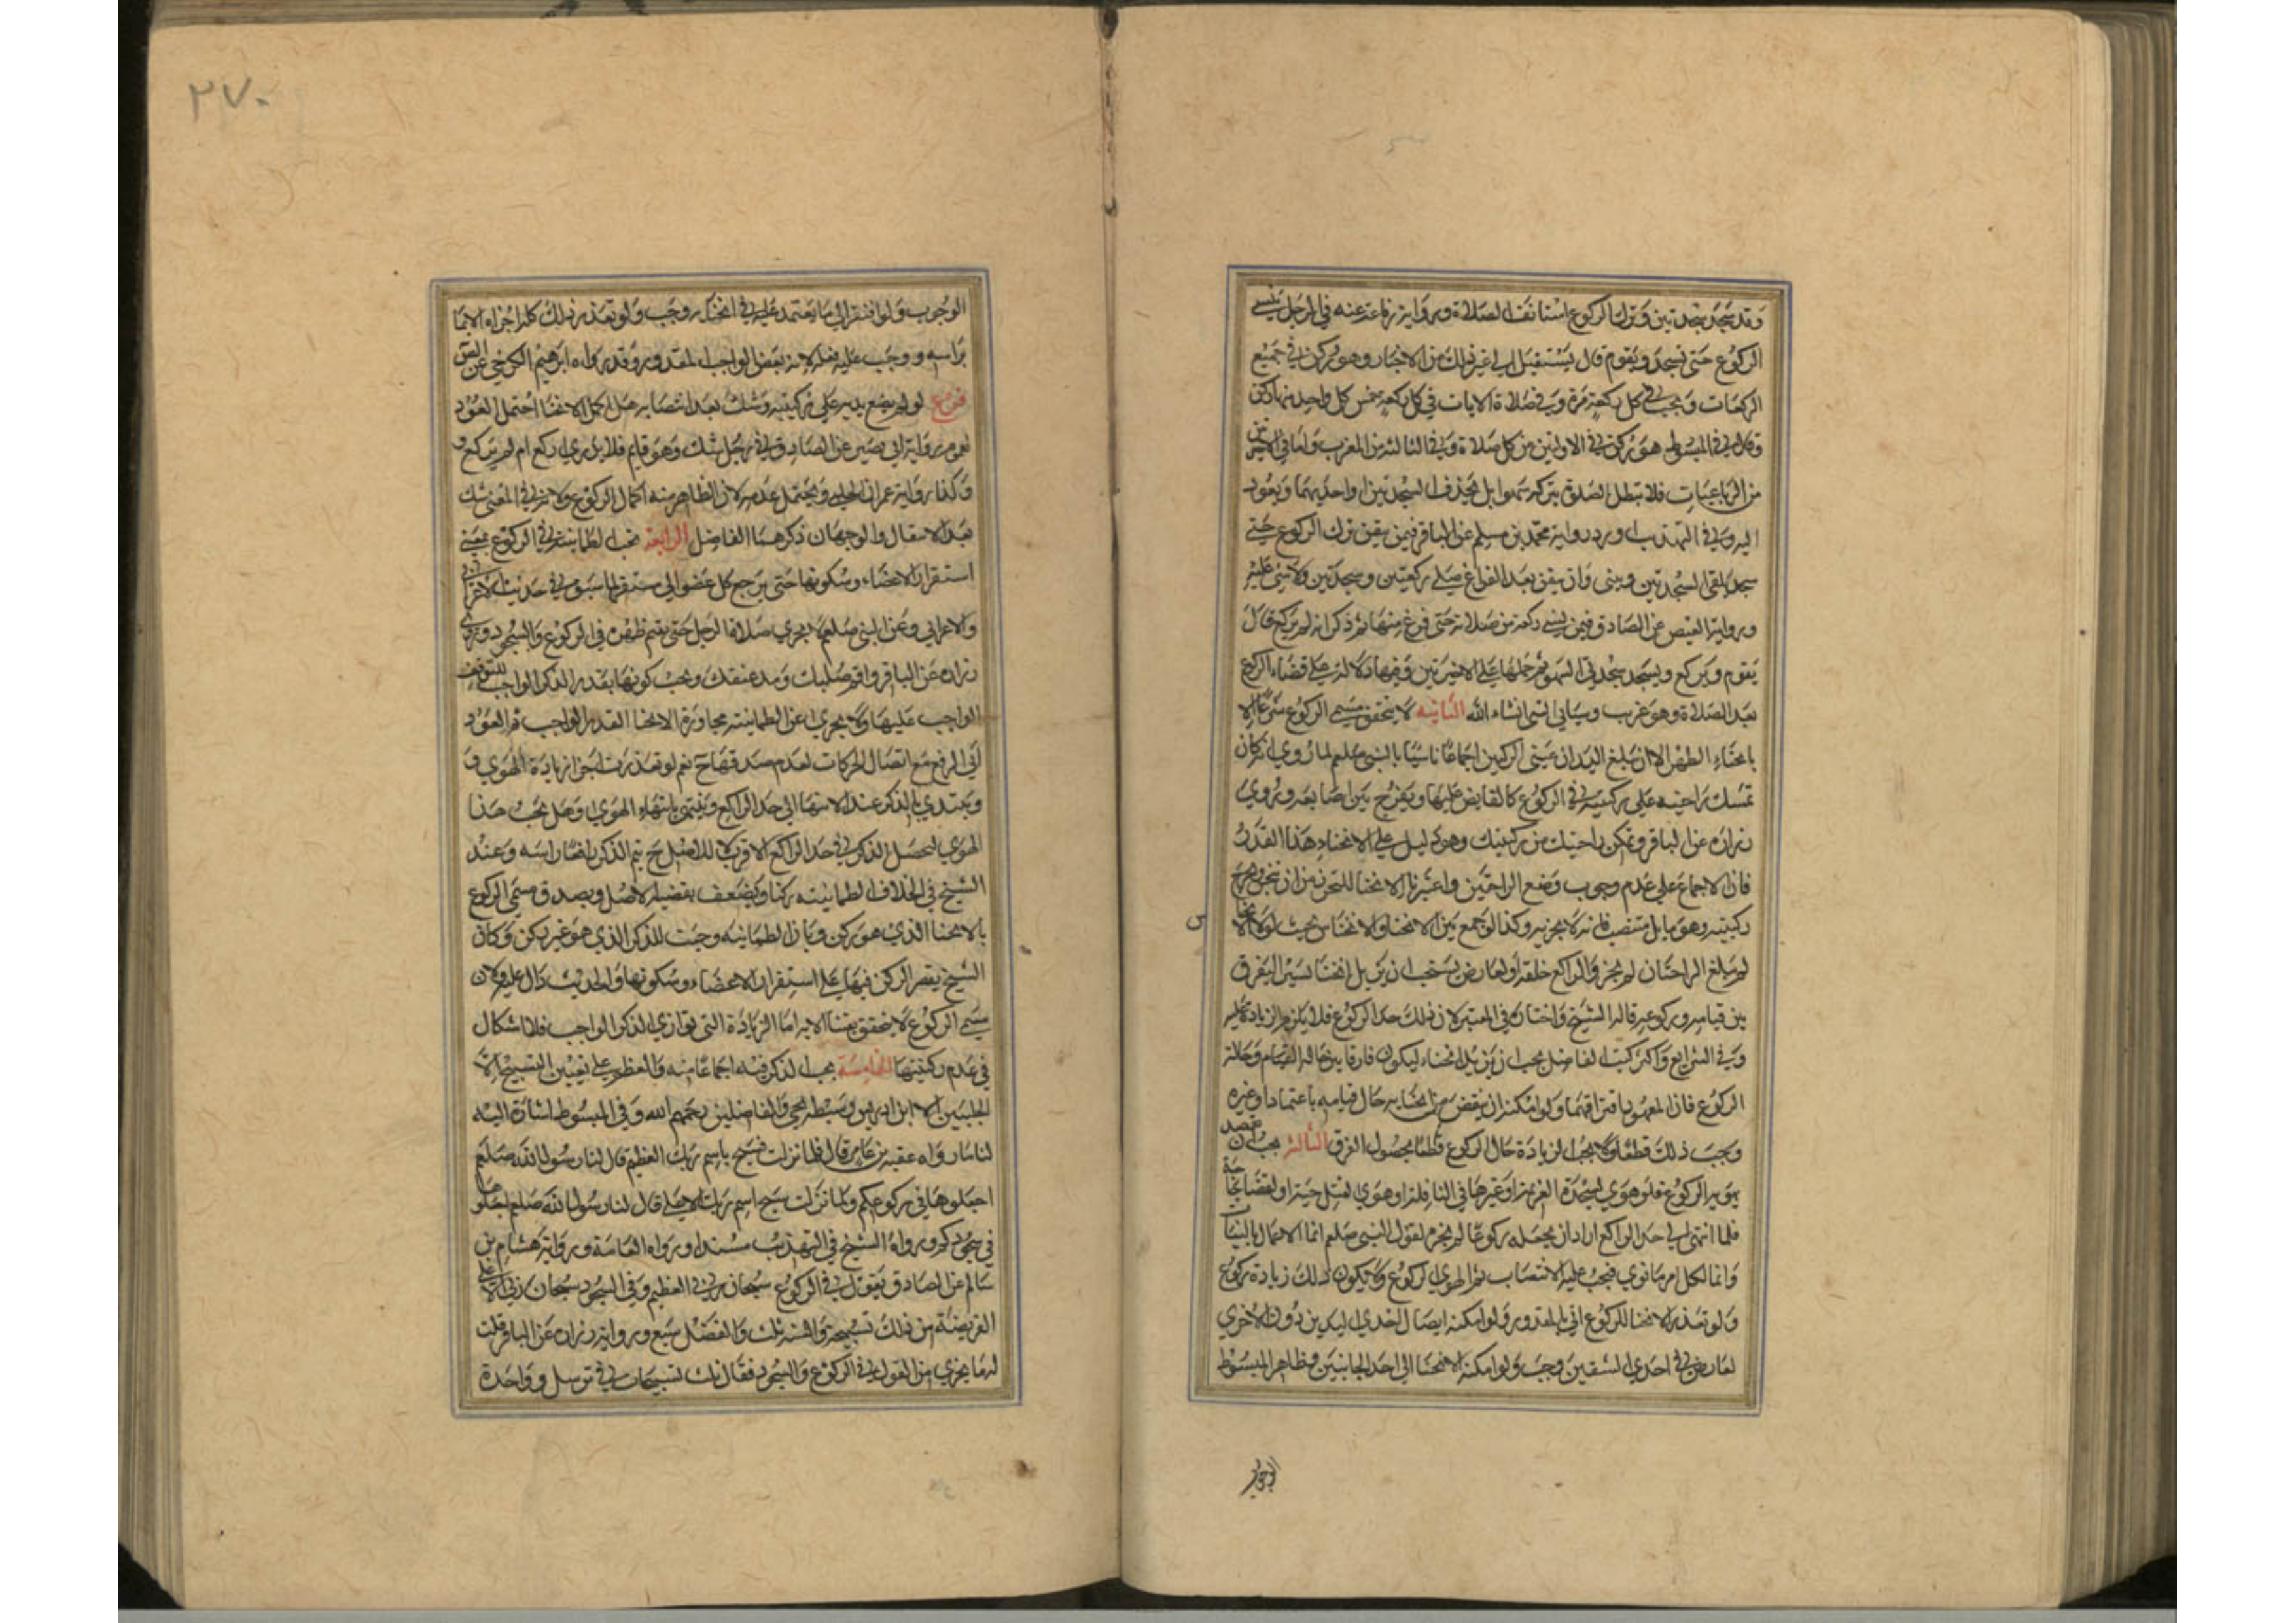 وقد سجد سجدتين وترك الركوع استانف الصلاة ورواية رفاعة عنه في الرجل ينسي
الركوع حتى يسجد ويقوم قال يستقبل الى غير ذلك من الاخبار وهو ركن في جميع
الركعات ويجب في كل ركعة مرة وفي صلاة الايات في كل ركعة خمس كل واحد منها ركن
وقال في المبسوط هو ركن في الاوليين من كل صلاة وفي الثالثة من المغرب واما في الاخيرتين
من الرباعيات فلا تبطل الصلوة بتركه سهوا بل يحذف السجدتين او احديهما ويعود
اليه وفي التهذيب اورد رواية محمد بن مسلم عن الباقر فيمن تيقن ترك الركوع حتى
سجد يلقى السجدتين ويبنى وان تيقن بعد الفراغ صلى ركعتين وسجدتين ولا شئ عليه
ورواية العيص عن الصادق فيمن نسي ركعة من صلاته حتى فرغ منها ثم ذكر انه لم يركع قال
يقوم ويركع ويسجد سجدتي السهو ثم حملها على الاخيرتين وفيها دلالة على قضاء الركوع
بعد الصلاة وهو غريب وسياتي انشاء الله الثانية لا يتحقق مسمى الركوع شرعا الا
بانحناء الظهر الا ان تبلغ اليدان عينى الركبتين اجماعا تاسيا بالنبي صلعم لما روي انه كان
تمسك براحتيه على ركبتيه في الركوع كالقابض عليها ويفرج بين اصابعه وروي
زرارة عن الباقر وتمكن راحتيك من ركبتيك وهو دليل على الانحناء هذا القدر
فان الاجماع على عدم وجوب وضع الراحتين واعتبرنا الانحنا للتحرز من ان تخرج
ركبتيه وهو مايل منتصب فانه لا يجزيه وكذا لو جمع بين الانحنا والانخناس بحيث لولا الانخناس
لم تبلغ الراحتان لم يجز والراكع خلقة او لعارض يستحب ان يزيل انحنا يسيرا ليفرق
بين قيامه وركوعه قاله الشيخ واختاره في المعتبر لان ذلك حد الركوع فلا يلزم الزيادة عليه
وفي الشرايع واكثر كتب الفاضل يجب ان يزيد انحناء ليكون فارقا بين حالة القيام وحالة
الركوع فان المعهود افتراقهما ولو امكنه ان ينقص من انحنايه حال قيامه باعتماد او غيره
وجب ذلك قطعا ولا يجب الزيادة حال الركوع قطعا لحصول الفرق الثالثة يجب ان يقصد
بهويه الركوع فلو هوى لسجدة العزيمة او غيرها في النافلة او هوى لقتل حية او لقضاء حاجة
فلما انتهى الى حد الراكع اراد ان يجعله ركوعا لم يجزه لقول النبي صلعم انما الاعمال بالنيات
وانما لكل امر ما نوي فيجب عليه الانتصاب ثم الهوي للركوع ولا يكون ذلك زيادة ركوع
ولو تعذر الانحنا للركوع اتي بالمقدور ولو امكنه ايصال احدي اليدين دون الاخري
لعارض في احدي الشقين وجب ولو امكنه الانحنا الى احد الجانبين فظاهر المبسوط
الوجوب
٢٧٠
الوجوب ولو افتقر الى ما يعتمد عليه في انحنايه وجب ولو تعذر ذلك كله اجزاه الايما
براسه ووجب عليه فعله لانه بعض الواجب المقدور وقد رواه ابرهيم الكرخي عن الصادق
فرع لو لم يضع يديه على ركبتيه وشك بعد انتصابه هل اكمل الانحنا احتمل العود
لعموم رواية ابي بصير عن الصادق في رجل شك وهو قايم فلا يدري اركع ام لم يركع
وكذا رواية عمران الحلبي ويحتمل عدمه لان الظاهر منه اكمال الركوع ولانه في المعنى شك
بعد الانتقال والوجهان ذكرهما الفاضل الرابعة تجب الطمانينة في الركوع بمعنى
استقرار الاعضاء وسكونها حتى يرجع كل عضو الى مستقره لما سبق في حديث الاعرابي
وعن النبي صلعم لا يجزي صلاة الرجل حتى يقيم ظهره في الركوع والسجود وروى
زرارة عن الباقر واقم صلبك ومد عنقك ويجب كونها بقدر الذكر الواجب لتوقف
الواجب عليها ولا يجزي عن الطمانينة مجاوزة الانحنا القدر الواجب ثم العود
الى الرفع مع اتصال الحركات لعدم صدقها ح نعم لو تعذرت اجزا زيادة الهوي
ويبتدي بالذكر عند الانتهاء الى حد الراكع وينتهي بانتهاء الهوي وهل يجب هذا
الهوي لتحصل الذكر في حد الراكع الاقرب لا للاصل ح يتم الذكر رافعا راسه وعند
الشيخ في الخلاف الطمانينه ركنا ويضعف بقضية الاصل وبصدق مسمى الركوع
بالانحنا الذي هو ركن وبان الطمانينه وجبت للذكر الذي هو غير ركن وكان
الشيخ يقصر الركن فيها على استقرار الاعضاء وسكونها والحديث دال عليه ولان
مسمى الركوع لا يتحقق يقينا الا به اما الزيادة التي توازي الذكر الواجب فلا اشكال
في عدم ركنيتها الخامسة يجب الذكر فيه اجماعا منه والمعظم على تعيين التسبيح الا
الحلبيين الا ابن ادريس وسبطه يحيى والفاضلين رحمهم الله وفي المبسوط اشارة اليه
لنا ما رواه عقبة بن عامر قال لما نزلت فسبح باسم ربك العظيم قال لنا رسول الله صلعم
اجعلوها في ركوعكم ولما نزلت سبح اسم ربك الاعلى قال لنا رسول الله صلعم اجعلوها
في سجودكم ورواه الشيخ في التهذيب مسندا ورواه العامة ورواية هشام بن
سالم عن الصادق يقول في الركوع سبحان ربي العظيم وفي السجود سبحان ربي الاعلى
الفريضة من ذلك تسبيحة والسنة ثلث والفضل سبع ورواية زرارة عن الباقر قلت
له ما يجزي من القول في الركوع والسجود فقال ثلث تسبيحات في ترسل وواحدة